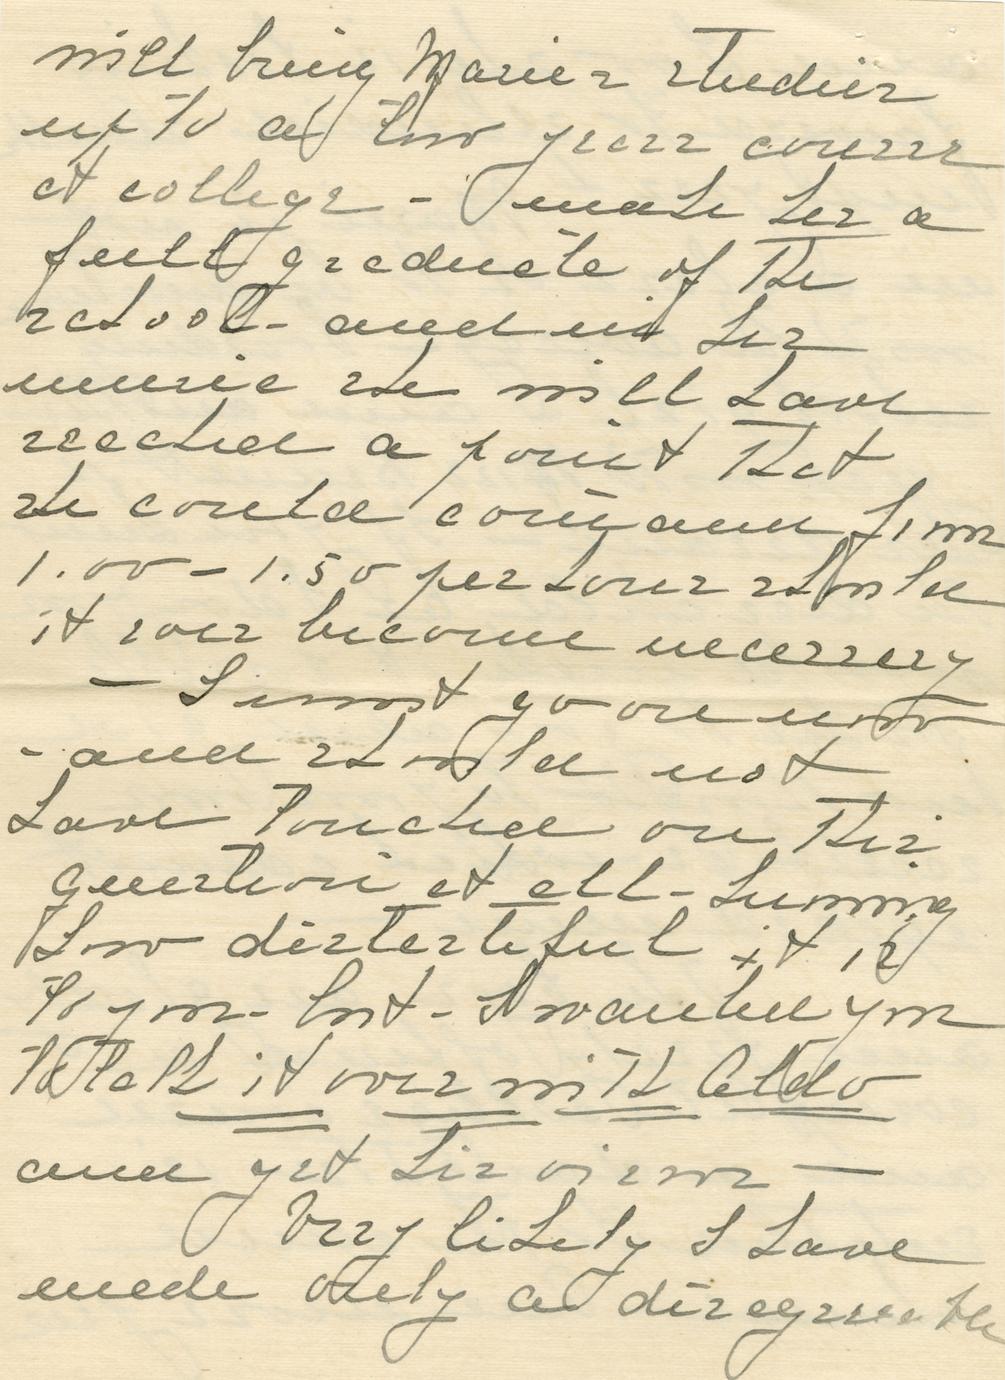 will bring Maries studies
up to a two years course
at college - make her a
full graduate of the
school - and in her
music she will have
reached a point that
she could command from
1.00 - 1.50 per hour should
it ever become necessary
- I must go on now
- and should not
have touched on this
question at all - knowing
how distasteful it is
to you - but - I wanted you
to talk it over with Aldo
and get his views -
Very likely I have
made only a disagreeable